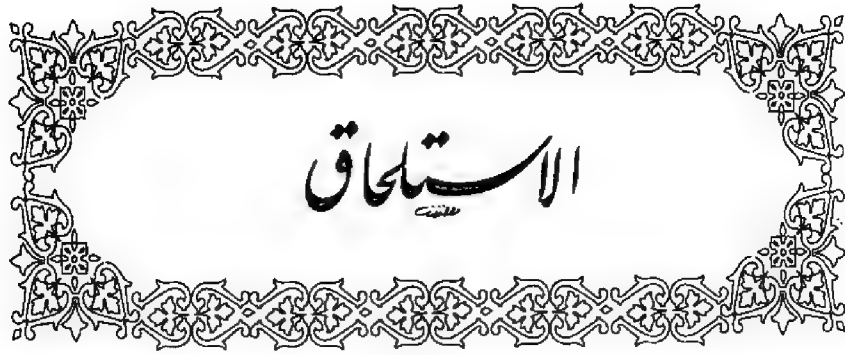 الاستلحاق